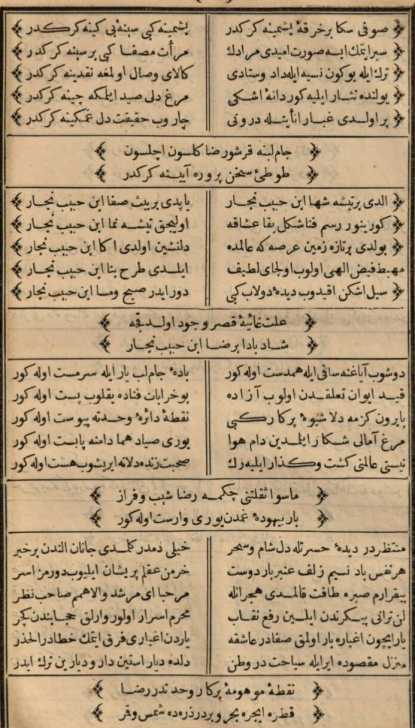 صوفی سکا بر خرقهٔ پشمینه کرکدر
پشمینه کبی سینهٔ بی کینه کرکدر
سیر ایتمك ایسه صورت امیدی مرادك
مرآت مصفا کبی بر سینه کرکدر
ترك ایله بوکون نسیه ایله داد و ستادی
کالای وصال اولمغه نقدینه کرکدر
یولنده نثار ایلیه کور دانهٔ اشکی
مرغ دلی صید ایلمکه چینه کرکدر
پر اولدی غبار انایتله درونی
چاروب حقیقت دل غمکینه کرکدر
جام لبنه قرشو رضا کلسون اچلسون
طوطیٔ سخن پروره آیینه کرکدر
الدی بر تیشه شها ابن حبیب نجار
یاپدی بر بیت صفا ابن حبیب نجار
کورینور رسم فنا شکل بقا عشاقه
اولیجق تیشه نما ابن حبیب نجار
بولدی بر تازه زمین عرصه که عالمده
دلنشین اولدی اکا ابن حبیب نجار
مهبط فیض الهی اولوب اولجای لطیف
ایلدی طرح بنا ابن حبیب نجار
سیل اشکن اقیدوب دیدهٔ دولاب کبی
دور ایدر صبح و مسا ابن حبیب نجار
علت غائیهٔ قصر وجود اولدقجه
شاد بادا برضا ابن حبیب نجار
دوشوب آیاغنه ساقی ایله همدست اوله کور
بادهٔ جام لب یار ایله سرمست اوله کور
قید ایوان تعلقدن اولوب آزاده
بو خرابات فناده یقلوب پست اوله کور
یابرون کزمه دلا شیوهٔ پرکار کبی
نقطهٔ دائرهٔ وحدته پیوست اوله کور
مرغ آمالی شکار ایلدین دام هوا
یوری صیاد هما دامنه پابست اوله کور
نیستی عالمنی کشت و کذار ایلیه رك
صحبت زنده دلانه ایریشوب هست اوله کور
ماسوا ثقلتنی چکمه رضا شیب و فراز
بار بیهودهٔ غمدن یوری وارست اوله کور
منتظردر دیدهٔ حسرتله دل شام و سحر
خیلی دمدر کلمدی جانان الندن بر خبر
هر نفس یاد نسیم زلف عنبر بار دوست
خرمن عقلم پریشان ایلیوب دورمز اسر
بیقرارم صبره طاقت قالمدی هجرانله
مرحبا ای مرشد والاهمم صاحب نظر
لن ترانی پیکرندن ایلسین رفع نقاب
محرم اسرار اولور وارلق حجابندن کچر
یار ایچون اغیاره یار اولمق صفادر عاشقه
یاردن اغیاری فرق ایتمك خطادر الحذر
منزل مقصوده ایرایله سیاحت در وطن
دلده دیدار استین دار و دیارین ترك ایدر
نقطهٔ موهومهٔ پرکار وحدتدر رضا
قطره ایچره بحر و بردر ذرهده شمس و قمر